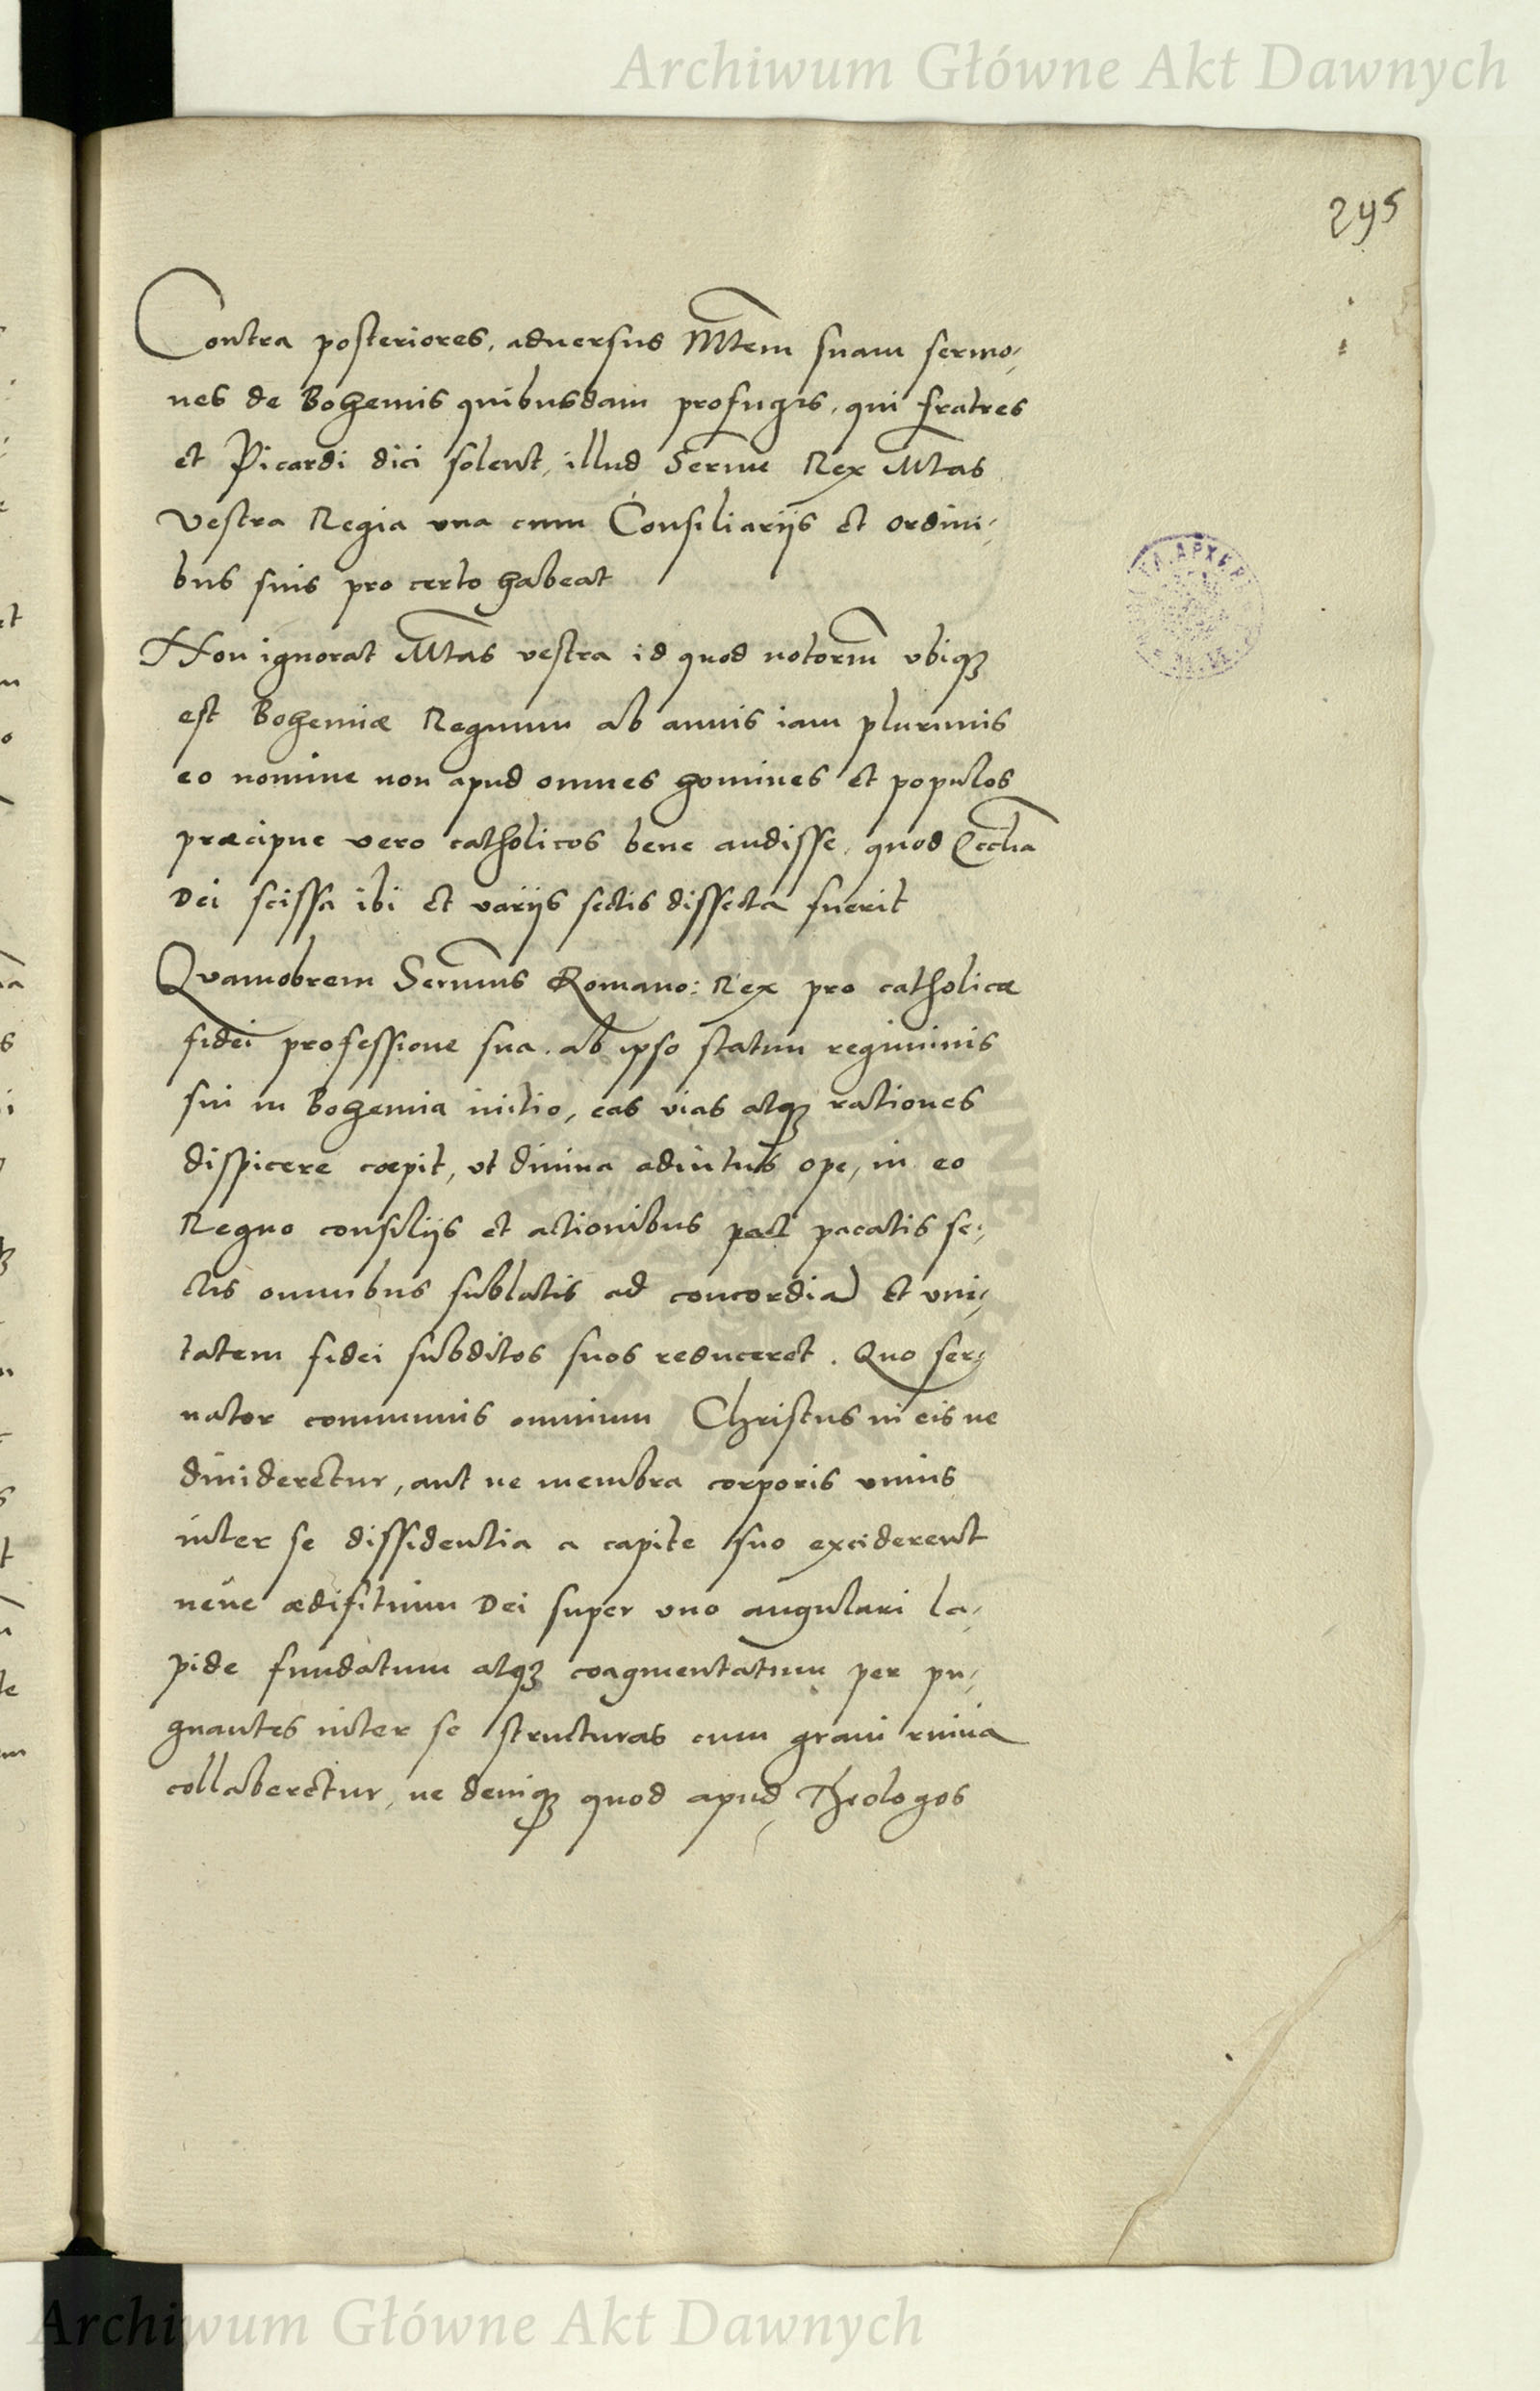 Archiwum Główne Akt Dawnych
295
Contra posteriores, adversus Mtem suam sermo,
nes de Bohemis quibusdam profugis, qui fratres
et Picardi dici solent, illud Serme Rex Mtas
Vestra Regia una cum Consiliarijs et ordini,
bus suis pro certo habeat
Non ignorat Mtas vestra id quod notorm ubiqꝫ
est Bohemiæ Regnum ab annis iam plurimis
eo nomine non apud omnes homines et populos
præcipue vero catholicos bene audisse, quod Eccha
Dei scissa ibi et varijs sectis dissecta fuerit
Quamobrem Sermus Romano: Rex pro catholicæ
fidei professione sua. ab ipso statim regiminis
sui in Bohemia initio, eas vias atqꝫ rationes
dispicere cœpit, ut divina adiutus ope, in eo
Regno consilijs et actionibus pact pacatis se,
ctis omnibus sublatis ad concordiā et uni,
tatem fidei subditos suos reduceret. Quo ser,
vator communis omnium Christus in eis ne
divideretur, aut ne membra corporis unius
inter se dissidentia a capite suo exciderent
neve ædifitium Dei super uno angulari la,
pide fundatum atqꝫ coagmentatum per pu,
gnantes inter se structuras cum gravi ruina
collaberetur, ne deniqꝫ quod apud Theologos
Archiwum Główne Akt Dawnych